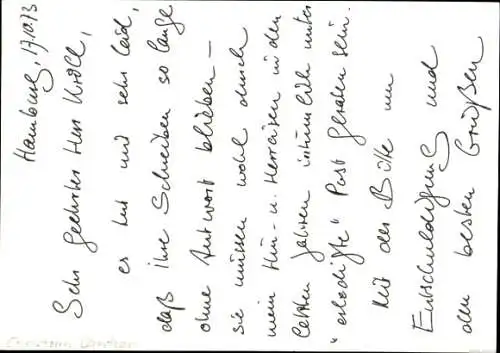 Hamburg, 17.10.93
Sehr geehrter Herr Kroll,
es tut mir sehr leid,
daß ihre Schreiben so lange
ohne Antwort blieben –
sie müssen wohl durch
mein Hin- u. Herreisen in den
letzten Jahren irrtümlich unter
"erledigte" Post geraten sein.
Mit der Bitte um
Entschuldigung und
den besten Grüßen